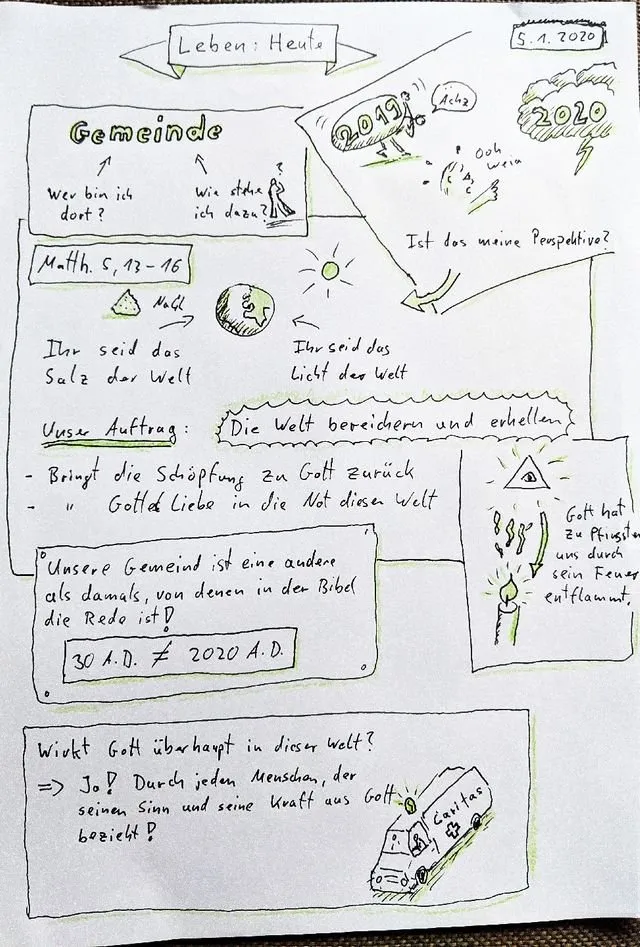 Leben: Heute
5.1.2020
2019
Ächz
2020
Ooh
weia
Ist das meine Perspektive?
Gemeinde
Wer bin ich
dort?
Wie stehe
ich dazu?
?
Matth. 5, 13-16
NaCl
Ihr seid das
Salz der Welt
Ihr seid das
Licht der Welt
Unser Auftrag:
Die Welt bereichern und erhellen
- Bringt die Schöpfung zu Gott zurück
- " Gottes Liebe in die Not dieser Welt
Gott hat
zu Pfingsten
uns durch
sein Feuer
entflammt.
Unsere Gemeind ist eine andere
als damals, von denen in der Bibel
die Rede ist!
30 A.D. ≠ 2020 A.D.
Wirkt Gott überhaupt in dieser Welt?
=> Ja! Durch jeden Menschen, der
seinen Sinn und seine Kraft aus Gott
bezieht!
Caritas